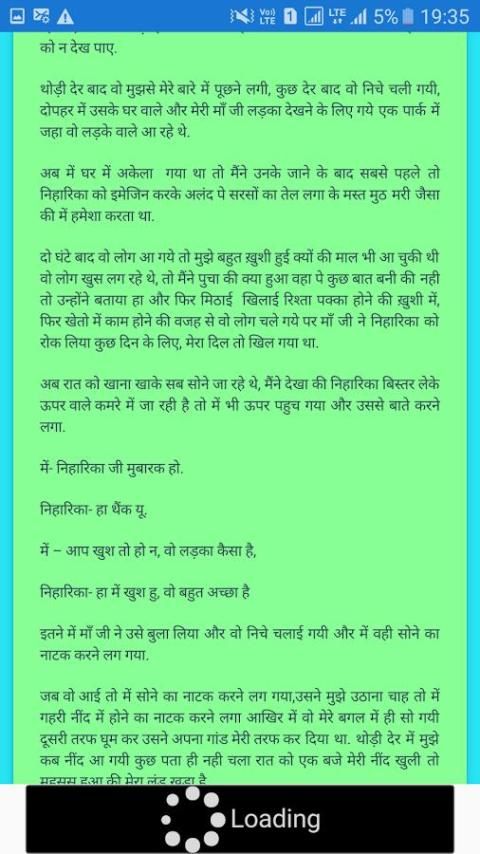 Vo))
LTE
1
LTE
5%
19:35
को न देख पाए.
थोड़ी देर बाद वो मुझसे मेरे बारे में पूछने लगी, कुछ देर बाद वो निचे चली गयी,
दोपहर में उसके घर वाले और मेरी माँ जी लड़का देखने के लिए गये एक पार्क में
जहा वो लड़के वाले आ रहे थे.
अब में घर में अकेला गया था तो मैंने उनके जाने के बाद सबसे पहले तो
निहारिका को इमेजिन करके अलंद पे सरसों का तेल लगा के मस्त मुठ मरी जैसा
की में हमेशा करता था.
दो घंटे बाद वो लोग आ गये तो मुझे बहुत ख़ुशी हुई क्यों की माल भी आ चुकी थी
वो लोग खुस लग रहे थे, तो मैंने पुचा की क्या हुआ वहा पे कुछ बात बनी की नही
तो उन्होंने बताया हा और फिर मिठाई खिलाई रिश्ता पक्का होने की ख़ुशी में,
फिर खेतो में काम होने की वजह से वो लोग चले गये पर माँ जी ने निहारिका को
रोक लिया कुछ दिन के लिए, मेरा दिल तो खिल गया था.
अब रात को खाना खाके सब सोने जा रहे थे, मैंने देखा की निहारिका बिस्तर लेके
ऊपर वाले कमरे में जा रही है तो में भी ऊपर पहुच गया और उससे बाते करने
लगा.
में- निहारिका जी मुबारक हो.
निहारिका- हा थैंक यू.
में – आप खुश तो हो न, वो लड़का कैसा है,
निहारिका- हा में खुश हु, वो बहुत अच्छा है
इतने में माँ जी ने उसे बुला लिया और वो निचे चलाई गयी और में वही सोने का
नाटक करने लग गया.
जब वो आई तो में सोने का नाटक करने लग गया,उसने मुझे उठाना चाह तो में
गहरी नींद में होने का नाटक करने लगा आखिर में वो मेरे बगल में ही सो गयी
दूसरी तरफ घूम कर उसने अपना गांड मेरी तरफ कर दिया था. थोड़ी देर में मुझे
कब नींद आ गयी कुछ पता ही नही चला रात को एक बजे मेरी नींद खुली तो
महसूस हुआ की मेरा लंड खड़ा है
Loading